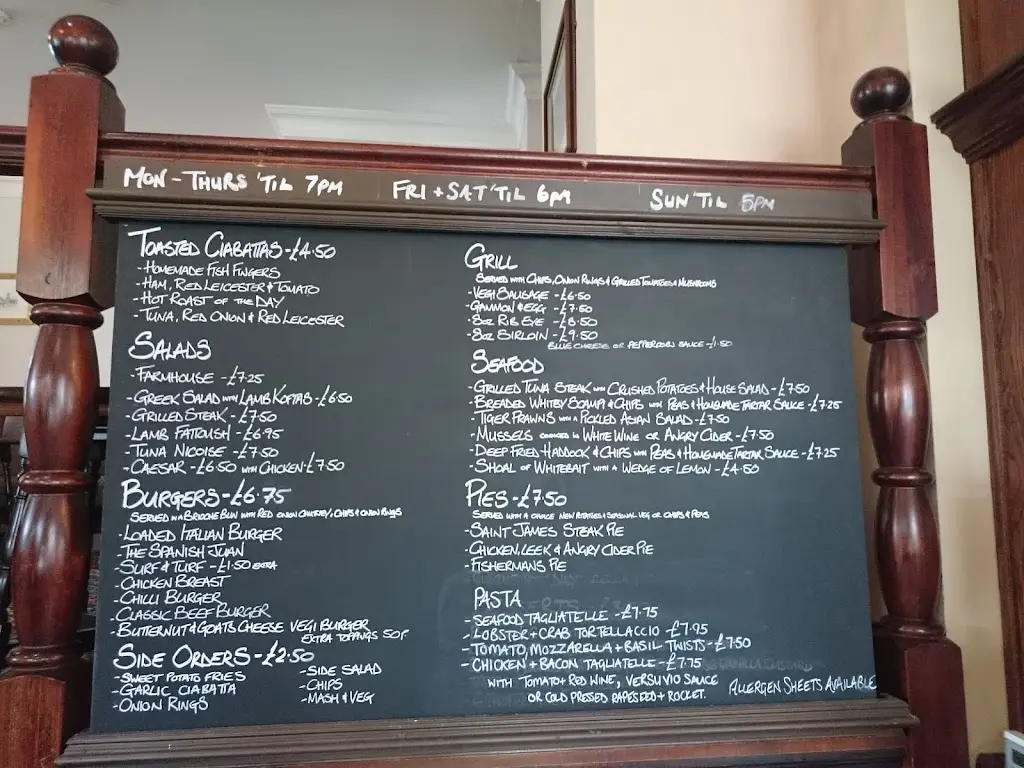 MON-THURS 'TIL 7PM
FRI + SAT 'TIL 6PM
SUN 'TIL 5PM
TOASTED CIABATTAS-£4.50
-HOMEMADE FISH FINGERS
-HAM, RED LEICESTER & TOMATO
-HOT ROAST OF THE DAY
-TUNA, RED ONION & RED LEICESTER
SALADS
-FARMHOUSE -£7.25
-GREEK SALAD WITH LAMB KOFTAS-£6.50
-GRILLED STEAK -£7.50
-LAMB FATTOUSH -£6.95
-TUNA NICOISE -£7.50
-CAESAR -£6.50 WITH CHICKEN-£7.50
BURGERS-£6.75
SERVED IN A BRIOCHE BUN WITH RED ONION CHUTNEY, CHIPS & ONION RINGS
-LOADED ITALIAN BURGER
-THE SPANISH JUAN
-SURF & TURF -£1.50 EXTRA
-CHICKEN BREAST
-CHILLI BURGER
-CLASSIC BEEF BURGER
-BUTTERNUT & GOATS CHEESE VEGI BURGER
EXTRA TOPPINGS 50P
SIDE ORDERS-£2.50
-SWEET POTATO FRIES
-GARLIC CIABATTA
-ONION RINGS
-SIDE SALAD
-CHIPS
-MASH & VEG
GRILL
SERVED WITH CHIPS, ONION RINGS & GRILLED TOMATOES & MUSHROOMS
-VEGI SAUSAGE -£6.50
-GAMMON & EGG -£7.50
-8OZ RIB EYE -£8.50
-8OZ SIRLOIN -£9.50
BLUE CHEESE OR PEPPERCORN SAUCE -£1.50
SEAFOOD
-GRILLED TUNA STEAK WITH CRUSHED POTATOES & HOUSE SALAD -£7.50
-BREADED WHITBY SCAMPI & CHIPS WITH PEAS & HOMEMADE TARTAR SAUCE -£7.25
-TIGER PRAWNS WITH A PICKLED ASIAN SALAD-£7.50
-MUSSELS COOKED IN WHITE WINE OR ANGRY CIDER -£7.50
-DEEP FRIED HADDOCK & CHIPS WITH PEAS & HOMEMADE TARTAR SAUCE -£7.25
-SHOAL OF WHITEBAIT WITH A WEDGE OF LEMON -£4.50
PIES -£7.50
SERVED WITH A CHOICE NEW POTATOES & SEASONAL VEG OR CHIPS & PEAS
-SAINT JAMES STEAK PIE
-CHICKEN, LEEK & ANGRY CIDER PIE
-FISHERMANS PIE
PASTA
-SEAFOOD TAGLIATELLE -£7.75
-LOBSTER + CRAB TORTELLACCIO £7.95
-TOMATO, MOZZARELLA + BASIL TWISTS -£7.50
-CHICKEN + BACON TAGLIATELLE -£7.75
WITH TOMATO + RED WINE, VERSUVIO SAUCE
OR COLD PRESSED RAPESEED + ROCKET.
ALLERGEN SHEETS AVAILABLE